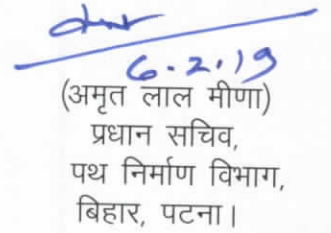 6.2.19
(अमृत लाल मीणा)
प्रधान सचिव,
पथ निर्माण विभाग,
बिहार, पटना।